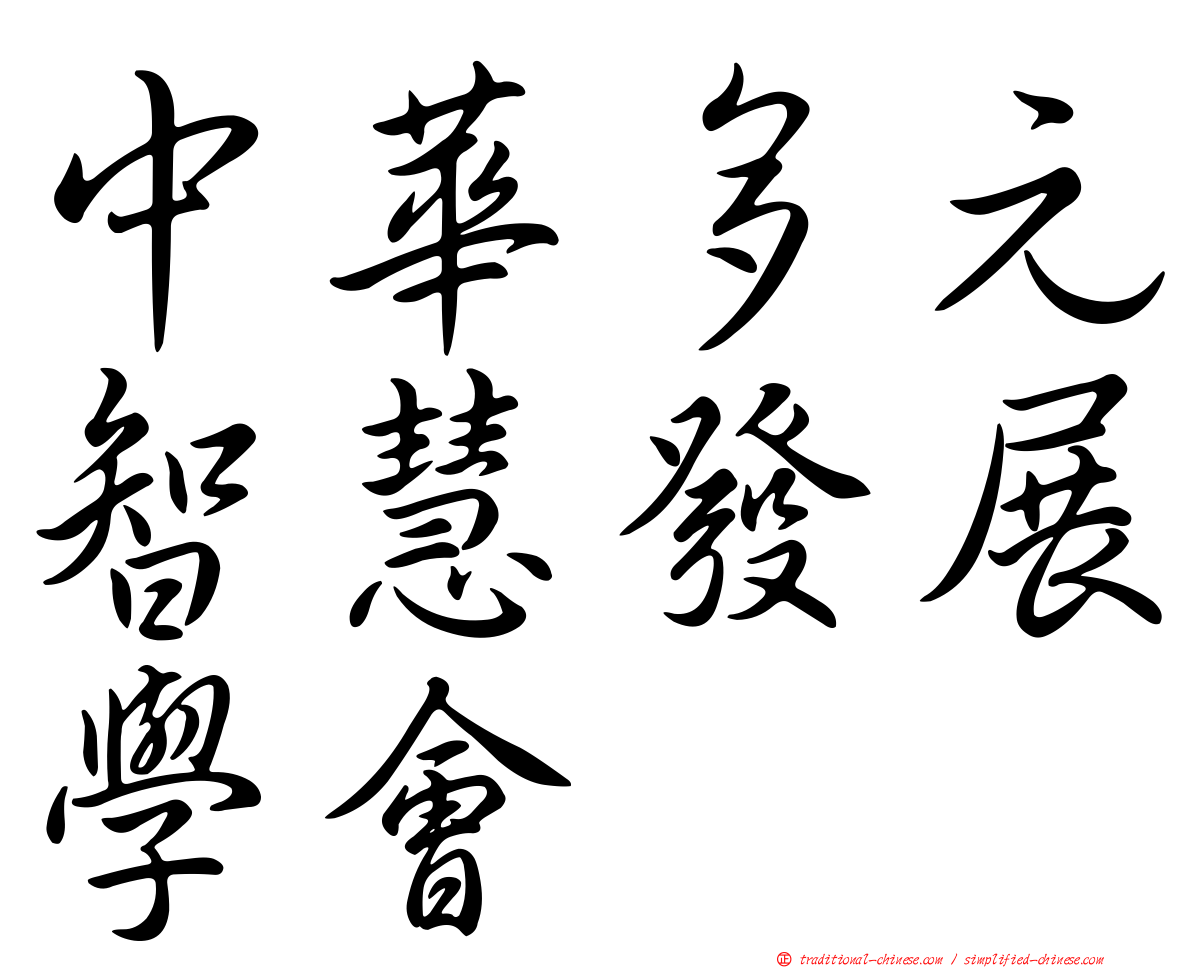 中華多元
智慧發展
學會
正 traditional-chinese.com / simplified-chinese.com